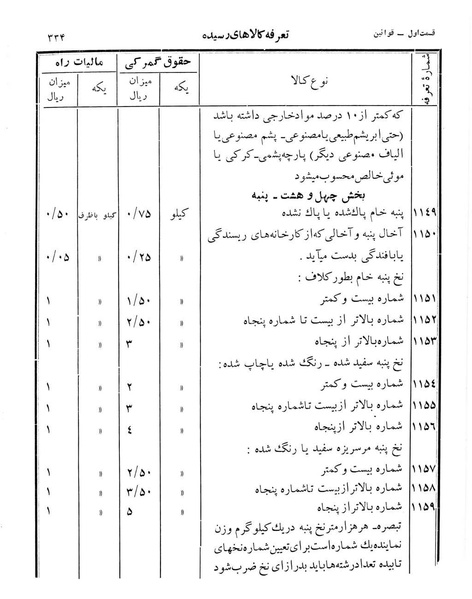 قسمت اول ــ قوانین
تعرفه کالاهای رسیده
۳۳۴
شمارهٔ تعرفه
نوع کالا
حقوق گمرکی
مالیات راه
یکه
میزان ریال
یکه
میزان ریال
که کمتر از ۱۰ درصد مواد خارجی داشته باشد
(حتی ابریشم طبیعی یا مصنوعی ــ پشم مصنوعی یا
الیاف مصنوعی دیگر) پارچه پشمی ــ کرکی یا
موئی خالص محسوب میشود
بخش چهل و هشت ــ پنبه
۱۱۴۹ پنبه خام پاك شده یا پاك نشده کیلو ۰/۷۵ کیلو باظرف ۰/۵۰
۱۱۵۰ آخال پنبه و آخالی که از کارخانه‌های ریسندگی
یا بافندگی بدست میآید . » ۰/۲۵ » ۰/۰۵
نخ پنبه خام بطور کلاف :
۱۱۵۱ شماره بیست و کمتر » ۱/۵۰ » ۱
۱۱۵۲ شماره بالاتر از بیست تا شماره پنجاه » ۲/۵۰ » ۱
۱۱۵۳ شماره بالاتر از پنجاه » ۳ » ۱
نخ پنبه سفید شده ــ رنگ شده یا چاپ شده :
۱۱۵٤ شماره بیست و کمتر » ۲ » ۱
۱۱۵۵ شماره بالاتر از بیست تا شماره پنجاه » ۳ » ۱
۱۱۵۶ شماره بالاتر از پنجاه » ٤ » ۱
نخ پنبه مرسریزه سفید یا رنگ شده :
۱۱۵۷ شماره بیست و کمتر » ۲/۵۰ » ۱
۱۱۵۸ شماره بالاتر از بیست تا شماره پنجاه » ۳/۵۰ » ۱
۱۱۵۹ شماره بالاتر از پنجاه » ۵ » ۱
تبصره ــ هر هزار متر نخ پنبه در یك کیلو گرم وزن
نماینده یك شماره است برای تعیین شماره نخهای
تابیده تعداد رشته‌ها باید بدرازای نخ ضرب شود